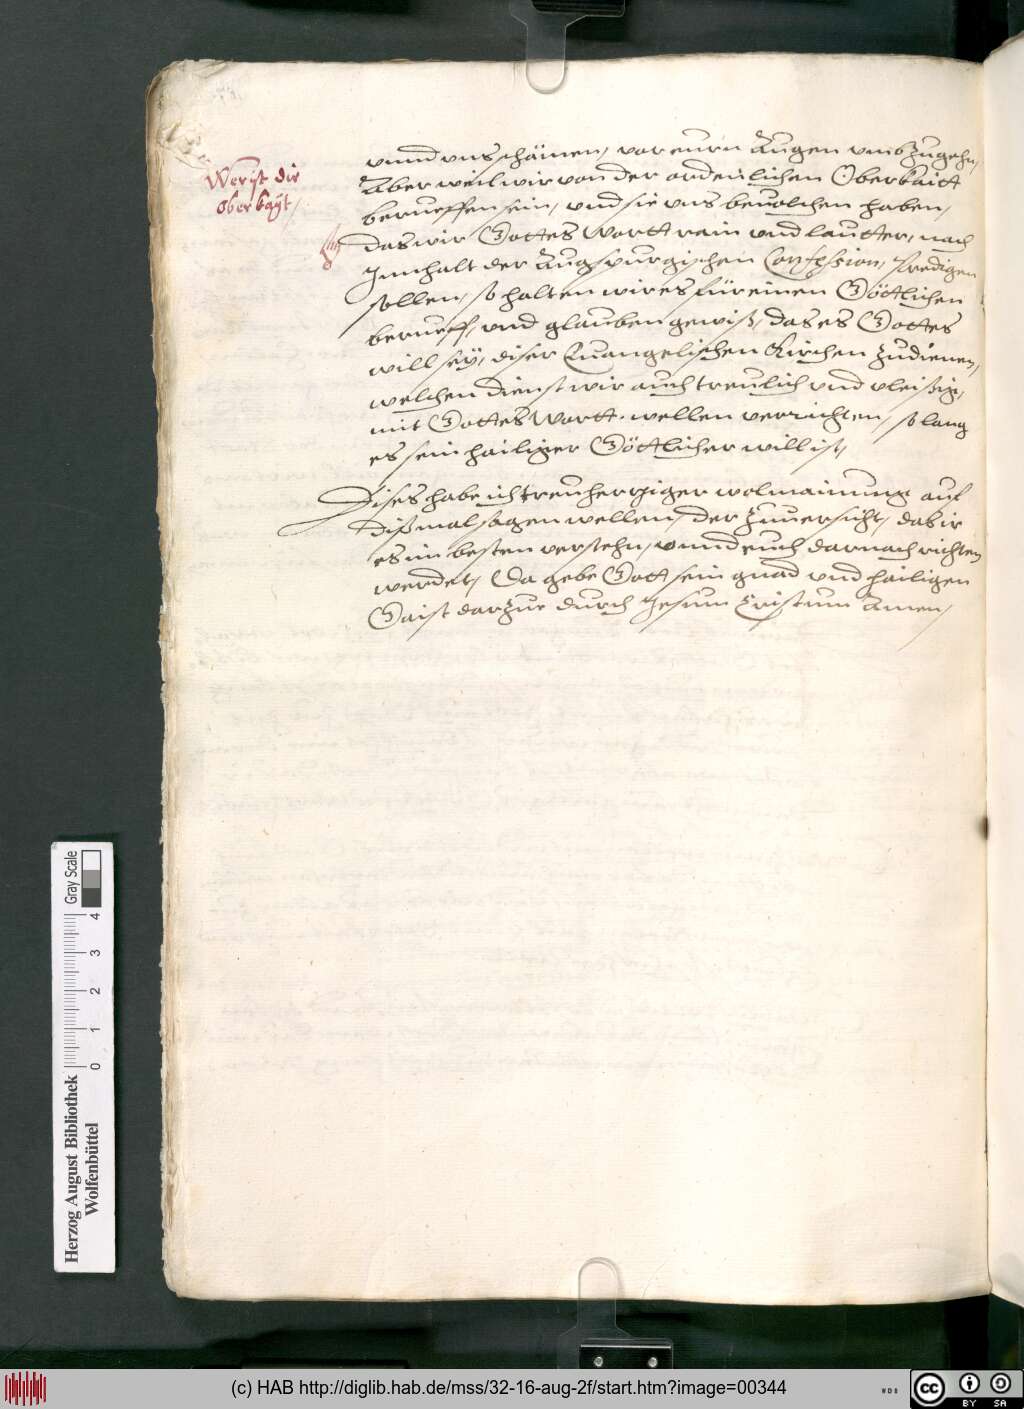 Wer ist die
Oberkayt/
vnnd vns schämen, vor eurn Augen vmbzugehn,
Aber weil wir von der ordenlichen Oberkaitt
berueffen sein, vnd sie vns beuolchen haben,
das wir Gottes Wortt rain vnd lautter, nach
Innhalt der Augspurgischen Confession, Predigen
sollen, so halten wir es für einen Göttlichen
berueff, vnd glauben gewiß, das es Gottes
will sey, diser Euangelischen Kirchen zudienen,
welchen dienst wir auch treulich vnd vleißig,
mit Gottes Wortt wellen verrichten, so lang
es sein hailiger Göttlicher will ist,
Dises habe ich treuhertziger wolmainung auf
dißmal sagen wellen, der Zuuersicht, das ir
es im besten verstehn, vnnd euch darnach richten
werdet, Da gebe Gott sein gnad vnd hailigen
Gaist darzue durch Jesum Cristum Amen,
Herzog August Bibliothek
Wolfenbüttel
0 1 2 3 4
Gray Scale
(c) HAB http://diglib.hab.de/mss/32-16-aug-2f/start.htm?image=00344
WDB
cc BY SA